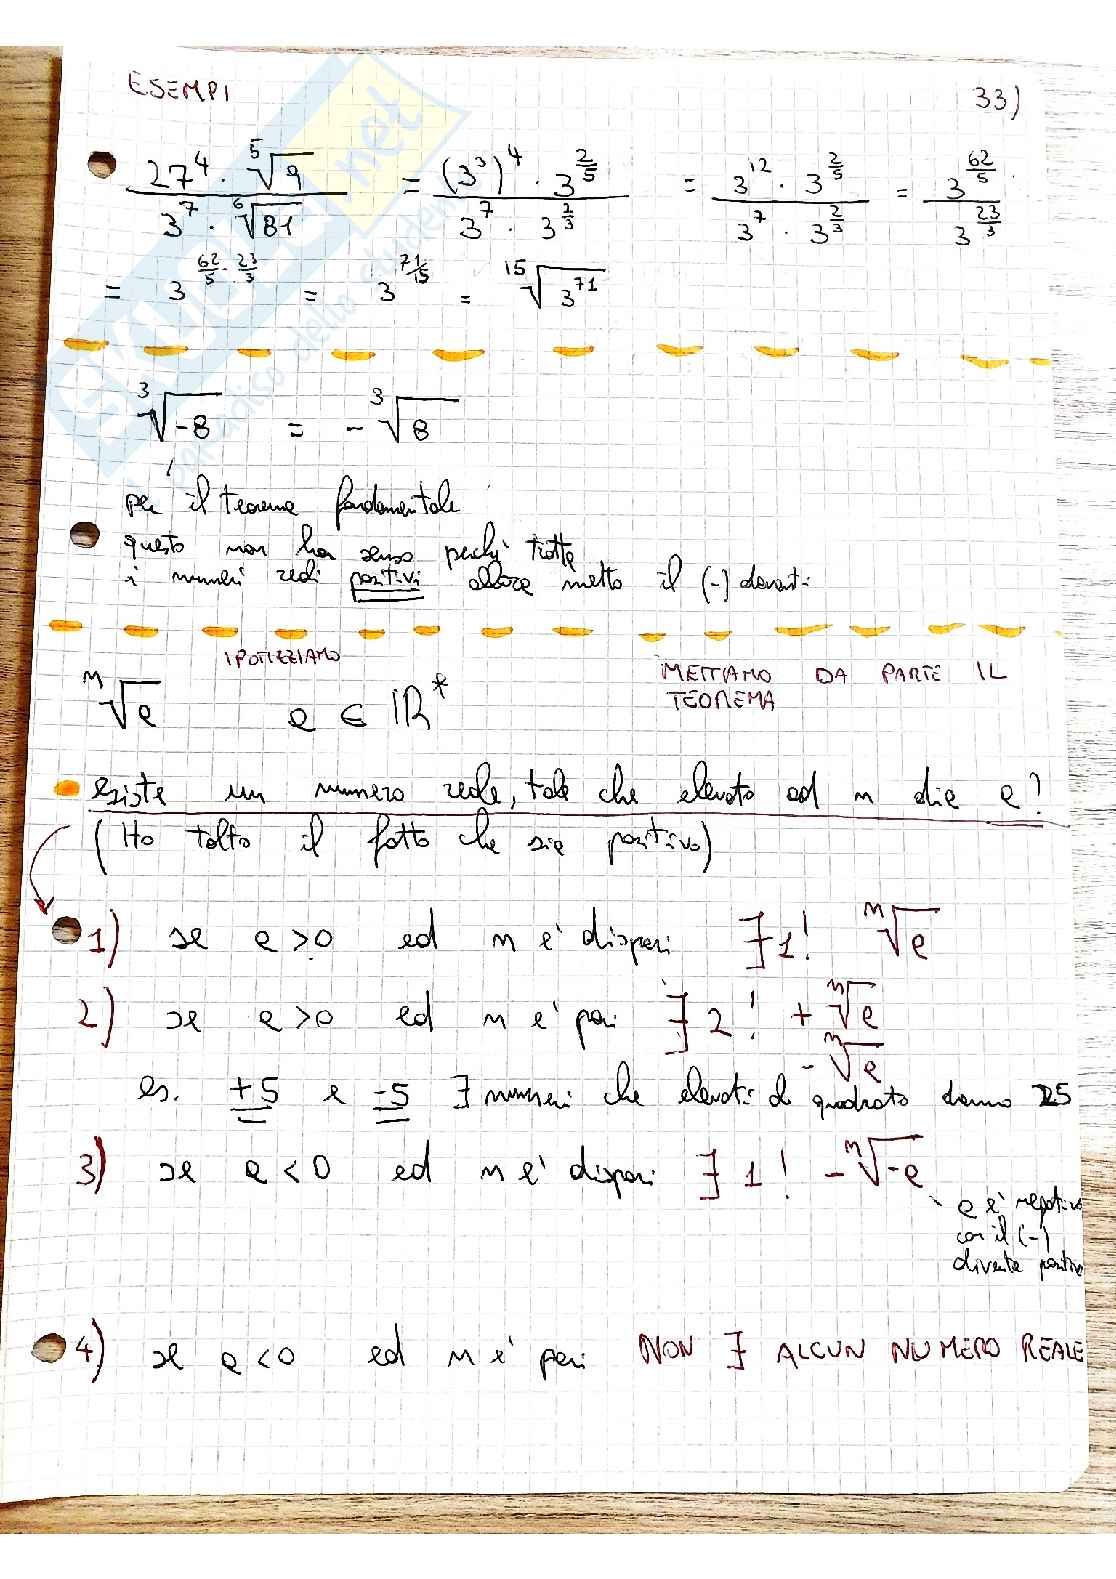 ESEMPI 33)
27⁴ · ⁵√9 / 3⁷ · ⁶√81 = (3³)⁴ · 3^(2/5) / 3⁷ · 3^(2/3) = 3¹² · 3^(2/5) / 3⁷ · 3^(2/3) = 3^(62/5) / 3^(23/3)
= 3^(62/5 - 23/3) = 3^(71/15) = ¹⁵√3⁷¹
³√-8 = - ³√8
per il teorema fondamentale
questo non ha senso perchè tratta
i numeri reali positivi allora metto il (-) davanti
IPOTIZZIAMO METTIAMO DA PARTE IL
ⁿ√a a ∈ ℝ* TEOREMA
esiste un numero reale, tale che elevato ad n dia a?
(Ho tolto il fatto che sia positivo)
1) se a > 0 ed n e' dispari ∃ 1! ⁿ√a
2) se a > 0 ed n e' pari ∃ 2! + ⁿ√a
- ⁿ√a
es. +5 e -5 ∃ numeri che elevati al quadrato danno 25
3) se a < 0 ed n e' dispari ∃ 1! - ⁿ√-a
a e' negativo
con il (-)
diventa positivo
4) se a < 0 ed n e' pari NON ∃ ALCUN NUMERO REALE